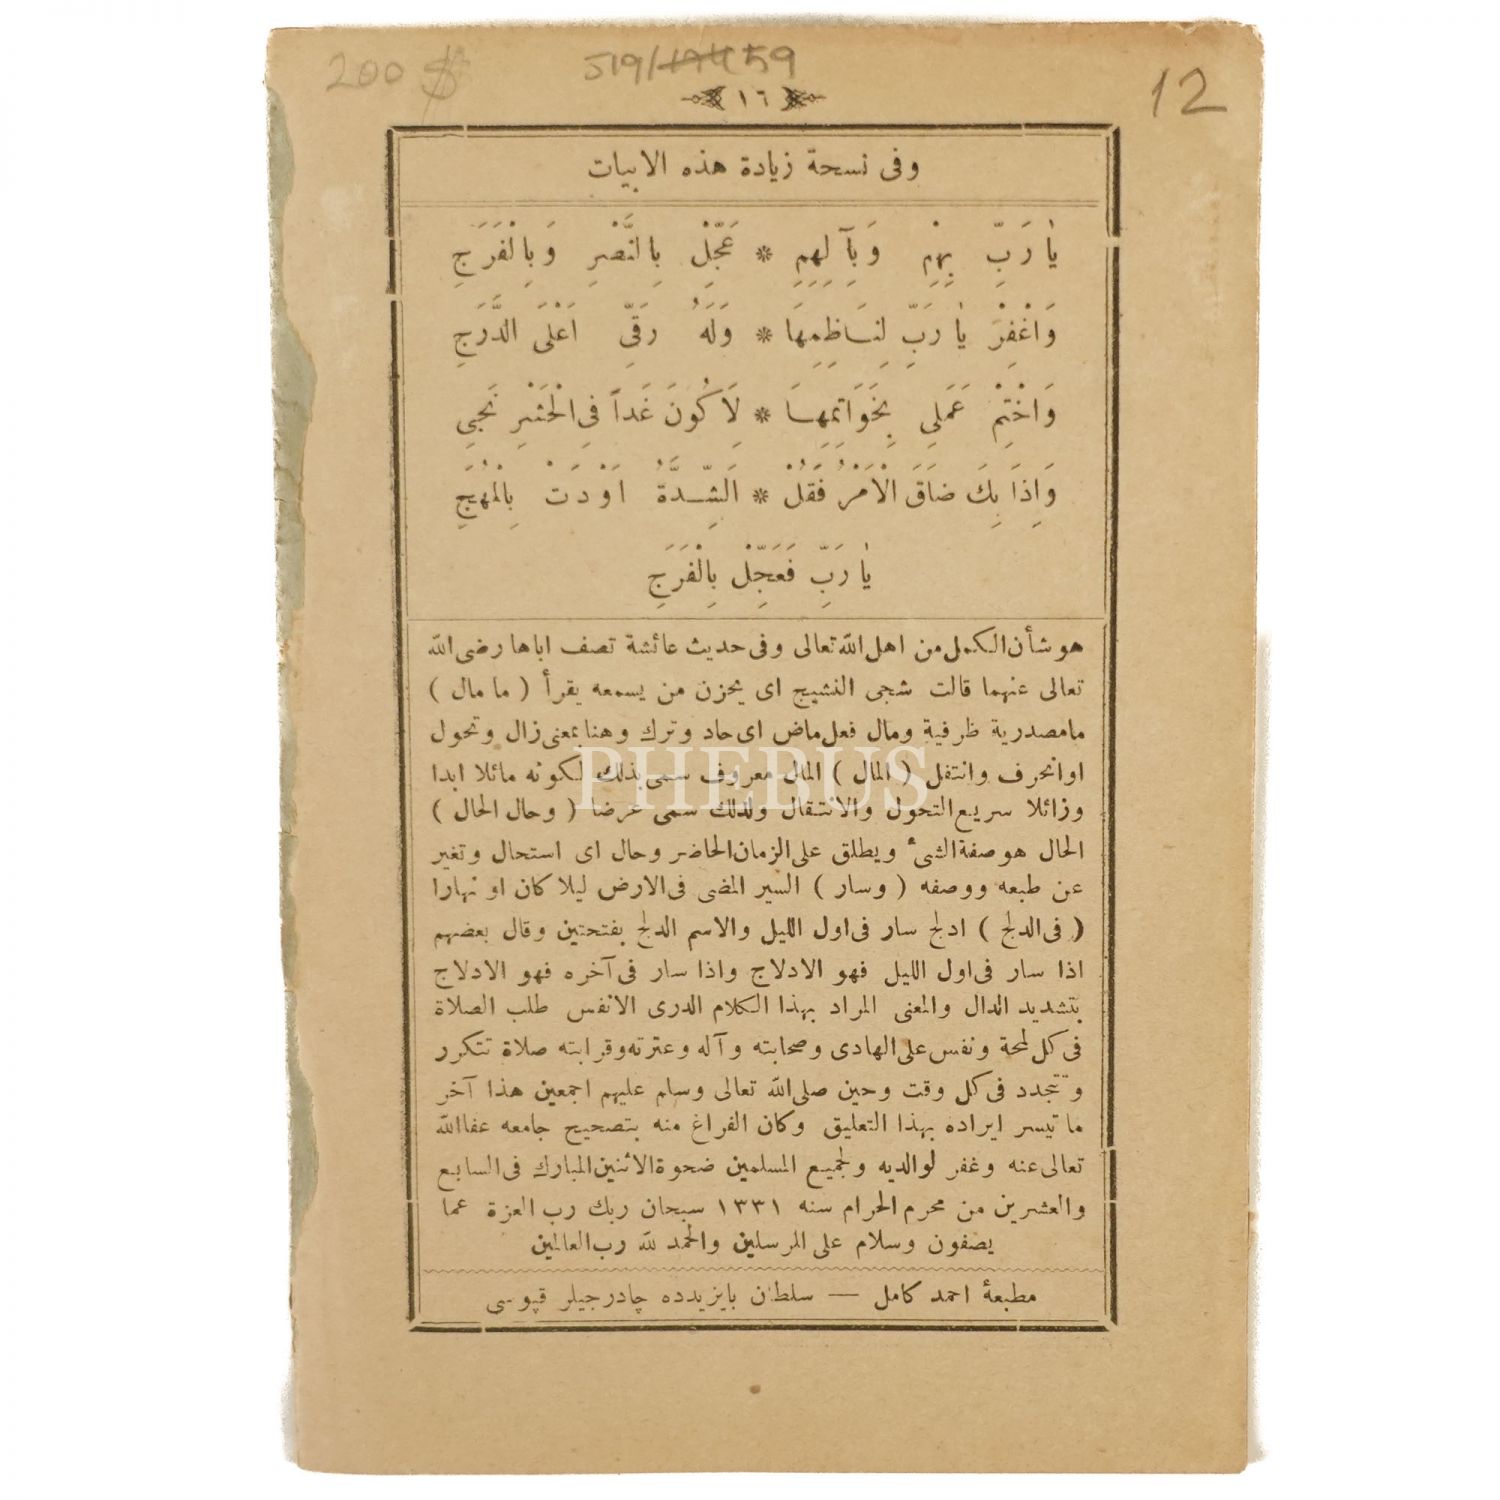 200 $
519/ 59
12
١٦
وفى نسخة زيادة هذه الابيات
يٰا رَبِّ بِهِمْ وَبِآلِهِمِ * عَجِّلْ بِالنَّصْرِ وَبِالْفَرَجِ
وَاغْفِرْ يٰا رَبِّ لِنَاظِمِهَا * وَلَهُ رَقِّى اَعْلَى الدَّرَجِ
وَاخْتِمْ عَمَلِى بِخَوَاتِمِهَا * لِاَكُونَ غَداً فِى الْحَشْرِ نَجِىِ
وَاِذَا بِكَ ضَاقَ الْاَمْرُ فَقُلْ * اَلشِّدَّةُ اَوْدَتْ بِالْمُهَجِ
يٰا رَبِّ فَعَجِّلْ بِالْفَرَجِ
هو شأن الكمل من اهل الله تعالى وفى حديث عائشة تصف اباها رضى الله
تعالى عنهما قالت شجى النشيج اى يحزن من يسمعه يقرأ ( ما مال )
ما مصدرية ظرفية ومال فعل ماض اى حاد وترك وهنا بمعنى زال وتحول
او انحرف وانتقل ( المال ) المال معروف سمى بذلك لكونه مائلا ابدا
وزائلا سريع التحول والانتقال ولذلك سمى عرضا ( وحال الحال )
الحال هو صفة الشىء ويطلق على الزمان الحاضر وحال اى استحال وتغير
عن طبعه ووصفه ( وسار ) السير المضى فى الارض ليلا كان او نهارا
( فى الدلج ) ادلج سار فى اول الليل والاسم الدلج بفتحتين وقال بعضهم
اذا سار فى اول الليل فهو الادلاج واذا سار فى آخره فهو الادلاج
بتشديد الدال والمعنى المراد بهذا الكلام الدرى الانفس طلب الصلاة
فى كل لمحة ونفس على الهادى وصحابته وآله وعترته وقرابته صلاة تتكرر
وتتجدد فى كل وقت وحين صلى الله تعالى وسلم عليهم اجمعين هذا آخر
ما تيسر ايراده بهذا التعليق وكان الفراغ منه بتصحيح جامعه عفا الله
تعالى عنه وغفر لوالديه ولجميع المسلمين ضحوة الاثنين المبارك فى السابع
والعشرين من محرم الحرام سنه ١٣٣١ سبحان ربك رب العزة عما
يصفون وسلام على المرسلين والحمد لله رب العالمين
مطبعۀ احمد كامل — سلطان بايزيدده چادرجيلر قپوسى
PHEBUS